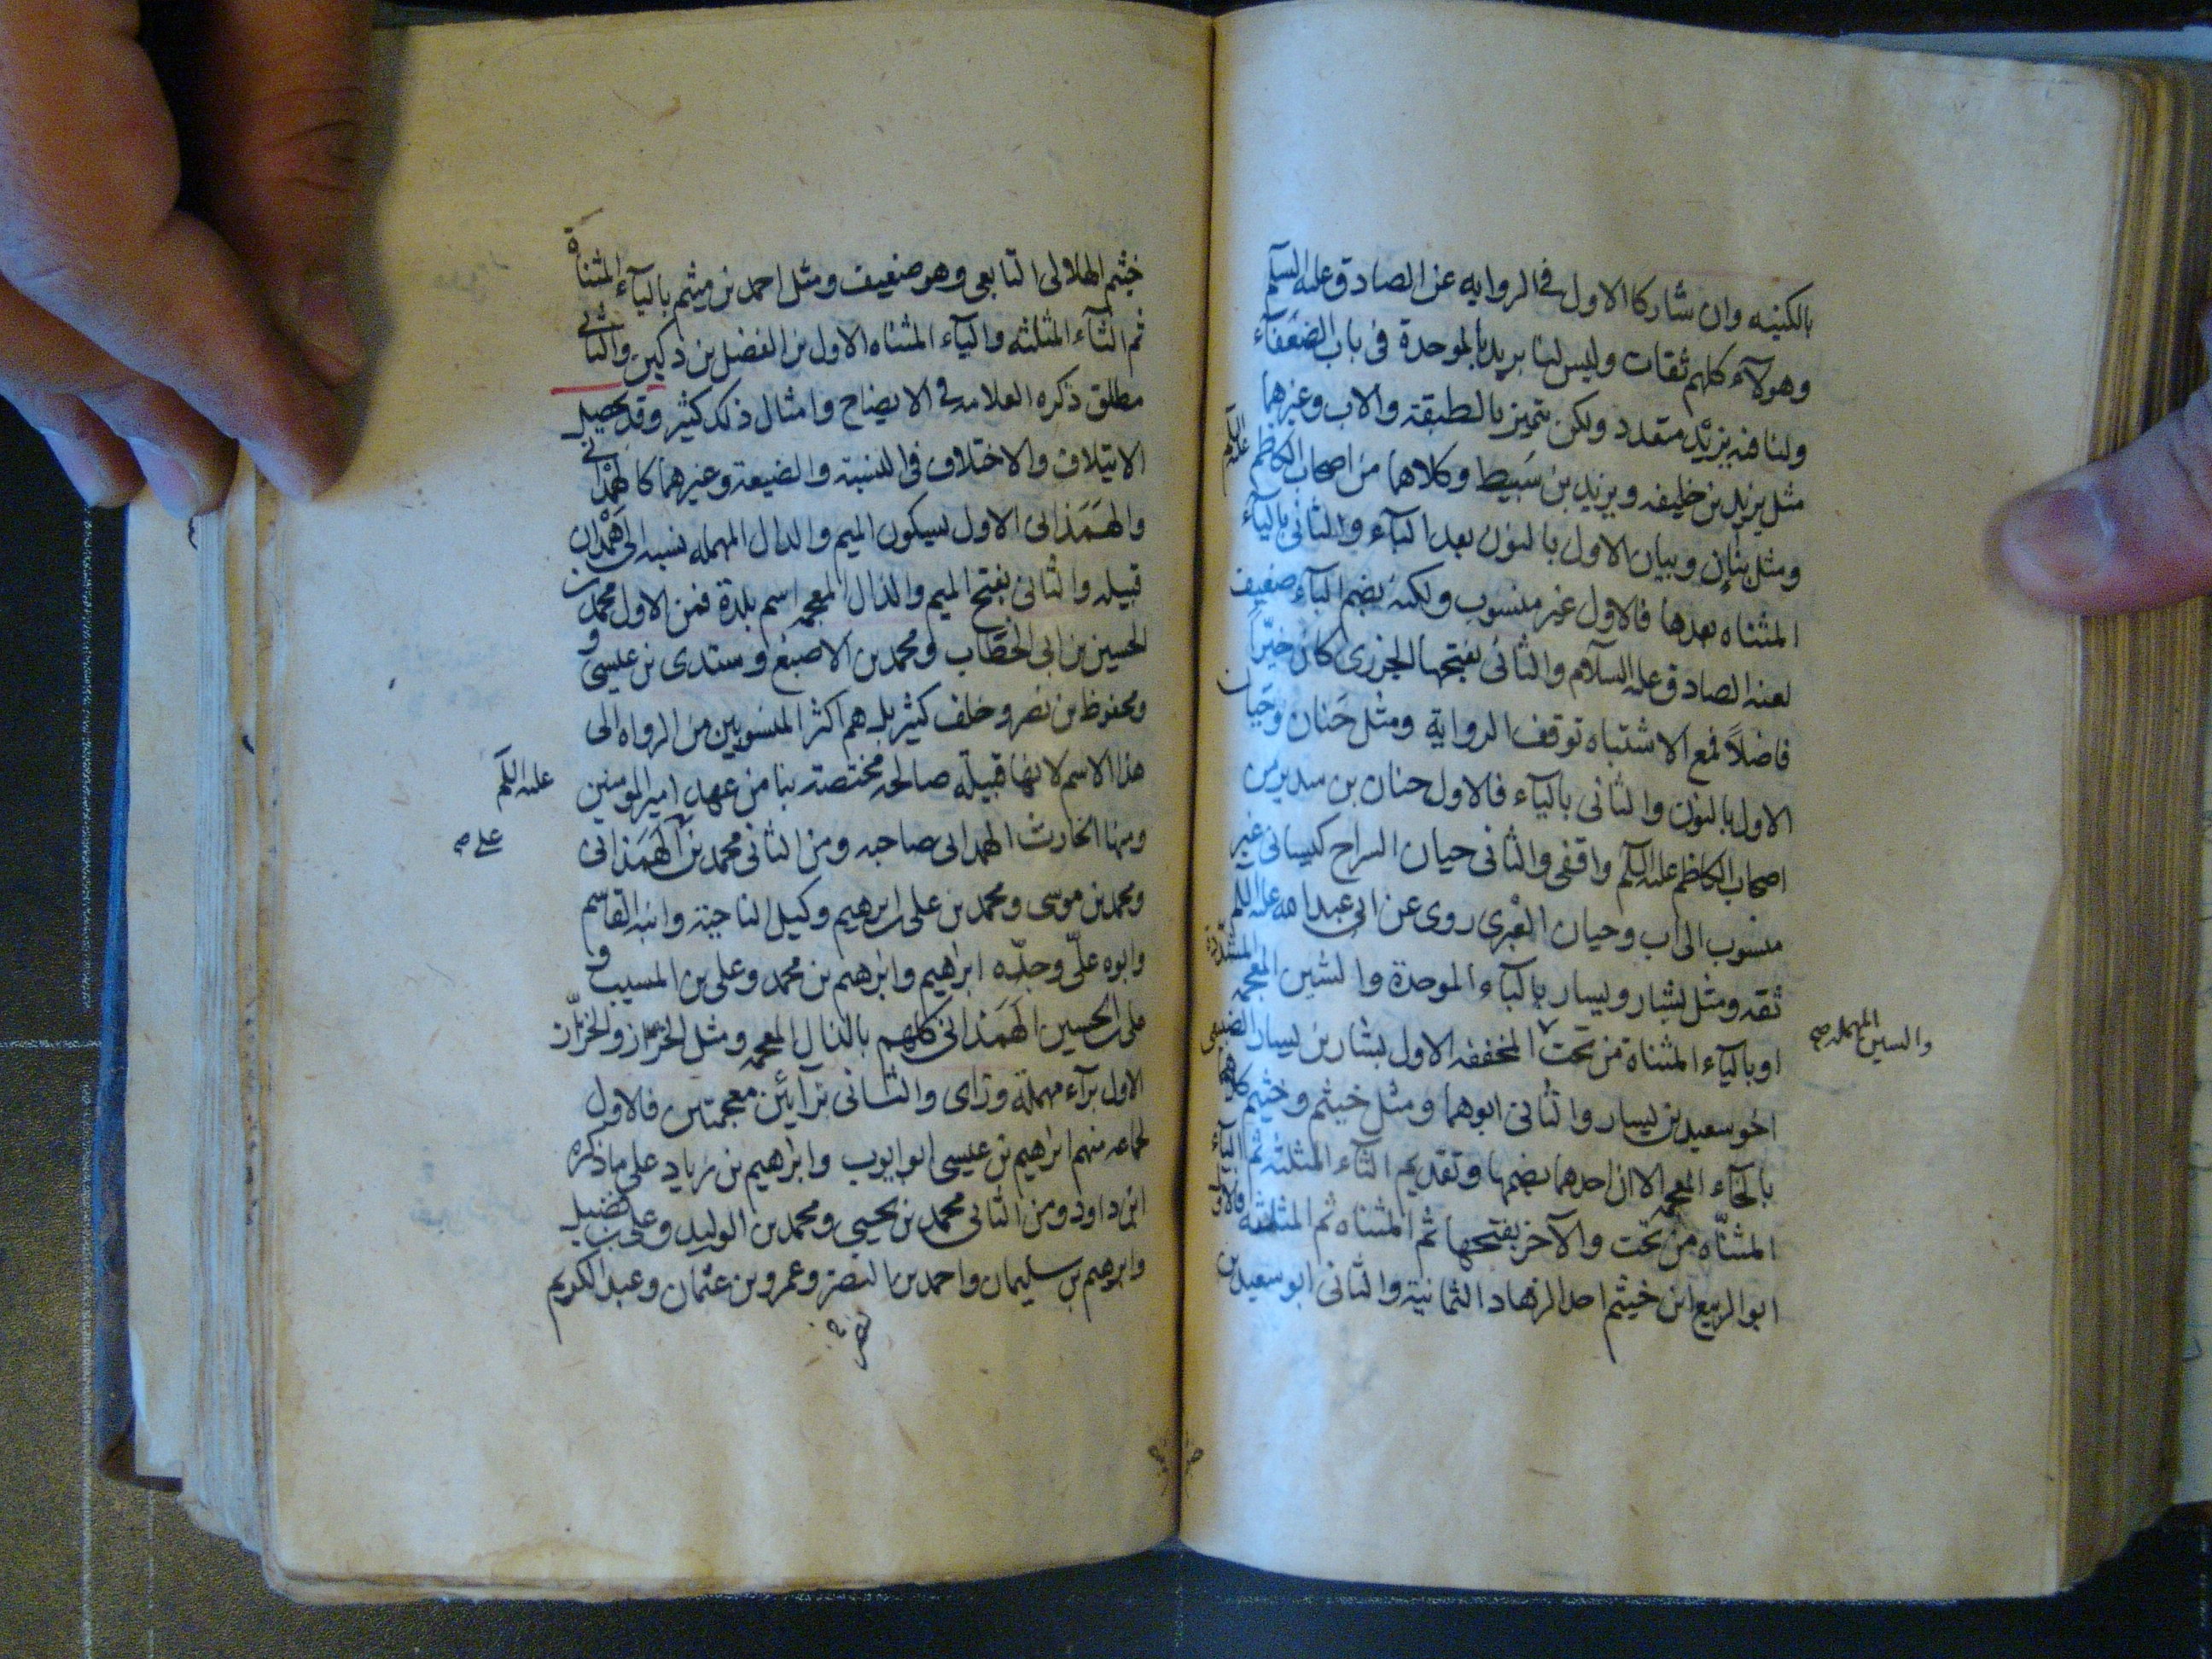 بالكنيه وان شاركا الاول في الروايه عن الصادق عليه السلم
وهولاء كلهم ثقات وليس لنا بريد بالموحدة في باب الضعفآء
ولنا فيه يزيد متعدد ولكن يتميز بالطبقة والاب وغيرهما
مثل يزيد بن خليفه ويزيد بن سَبيط وكلاهما من اصحاب الكاظم عليه السلم
ومثل بنان وبيان الاول بالنون بعد الباء والثاني بالياء
المثناه بعدها فالاول غير منسوب ولكنه بضم البآء ضعيف
لعنه الصادق عليه السلام والثاني بفتحها الجزرى كان خيّراً
فاضلاً فمع الاشتباه توقف الرواية ومثل حَنان وَحَيان
الاول بالنون والثاني بالياء فالاول حنان بن سدير من
اصحاب الكاظم عليه السلم واقفى والثاني حيان السراج كيسانى غير
منسوب الى اب وحيان العنزى روى عن ابي عبد الله عليه السلم
ثقه ومثل بشار ويسار بالبآء الموحدة والشين المعجمه المشددة
اوباليآء المثناة من تحت المخففه الاول بشار بن يسار الضبعى
والسين المهمله صح
اخو سعيد بن يسار والثاني ابوهما ومثل خيثم وخثيم كلاهما
بالخآء المعجمه الا ان احدهما بضمها وتقديم الثآء المثلثه ثم اليآء
المثنّاه من تحت والآخر بفتحها ثم المثناه ثم المثلثه فالاول
ابو الربيع ابن خيثم احد الزهاد الثمانية والثاني ابو سعيد بن
خيثم الهلالى التابعى وهو ضعيف ومثل احمد بن ميثم باليآء المثناة
ثم الثآء المثلثه والياء المثناه الاول بن الفضل بن دكين والثاني
مطلق ذكره العلامه في الايضاح وامثال ذلك كثير وقد يحصل
الايتلاف والاختلاف فى النسبة والضيعة وغيرهما كالهمْدانى
والهَمَذانى الاول بسكون الميم والدال المهمله نسبه الى هَمْدان
قبيله والثانى بفتح الميم والذال المعجمه اسم بلدة فمن الاول محمد بن
الحسين بن ابى الخطاب ومحمد بن الاصبغ وسندى بن عيسى و
محفوظ بن نصر وخلف كثير بل هم اكثر المنسوبين من الرواه الى
هذا الاسم لانها قبيلة صالحه مختصة بنا من عهد امير المومنين
عليه السلم
ومنها الحارث الهمدانى صاحبه ومن الثانى محمد بن الهَمَذانى
على صح
ومحمد بن موسى ومحمد بن على بن ابرهيم وكيل الناحية وابنه القاسم
وابوه علىّ وجدّه ابراهيم وابرهيم بن محمد وعلى بن المسيب و
على بن الحسين الهَمَذانى كلهم بالذال المعجمه ومثل الخراز والخزّاز
الاول برآء مهملة وزاى والثانى بزآيَيْن معجمتين فالاول
لجماعه منهم ابراهيم بن عيسى ابو ايوب وابراهيم بن زياد على ما ذكره
ابن داود ومن الثانى محمد بن يحيى ومحمد بن الوليد وعلى بن فضيل
وابرهيم بن سليمان واحمد بن النضر وعمرو بن عثمان وعبد الكريم